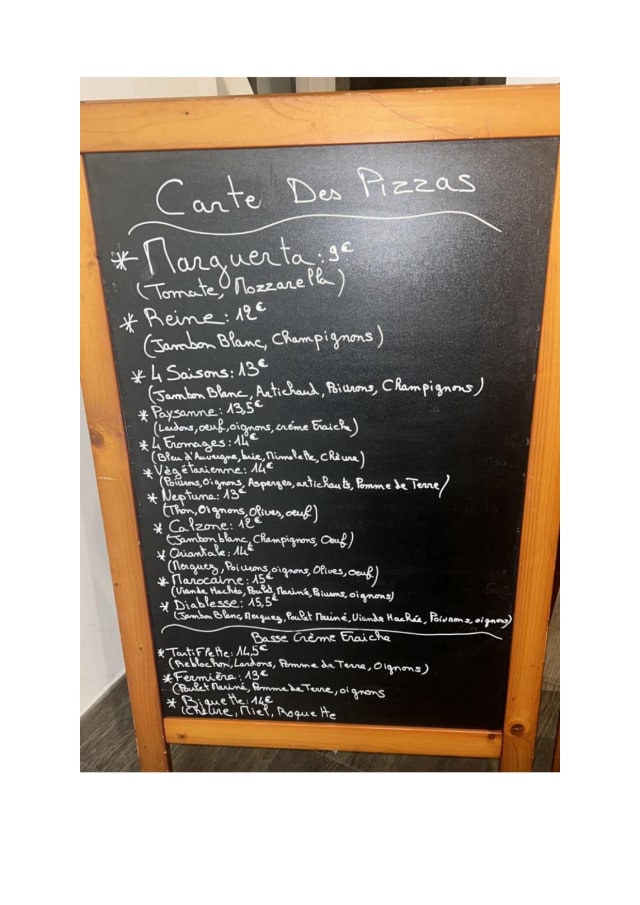 Carte Des Pizzas
* Marguerta : 9€
(Tomate, Mozzarella)
* Reine : 12€
(Jambon Blanc, Champignons)
* 4 Saisons : 13€
(Jambon Blanc, Artichaud, Poivrons, Champignons)
* Paysanne : 13,5€
(Lardons, oeuf, oignons, crème Fraiche)
* 4 Fromages : 14€
(Bleu d'Auvergne, brie, Mimolette, Chèvre)
* Végétarienne : 14€
(Poivrons, Oignons, Asperges, artichauts, Pomme de Terre)
* Neptune : 13€
(Thon, Oignons, Olives, oeuf)
* Calzone : 12€
(Jambon blanc, Champignons, Oeuf)
* Orientale : 14€
(Merguez, Poivrons, oignons, Olives, oeuf)
* Marocaine : 15€
(Viande Hachée, Poulet Mariné, Poivrons, oignons)
* Diablesse : 15,5€
(Jambon Blanc, Merguez, Poulet Mariné, Viande Hachée, Poivrons, oignons)
Basse Crème Fraiche
* Tartiflette : 14,5€
(Reblochon, Lardons, Pomme de Terre, Oignons)
* Fermière : 13€
(Poulet Mariné, Pomme de Terre, oignons
* Biquette : 14€
(Chèvre, Miel, Roquette